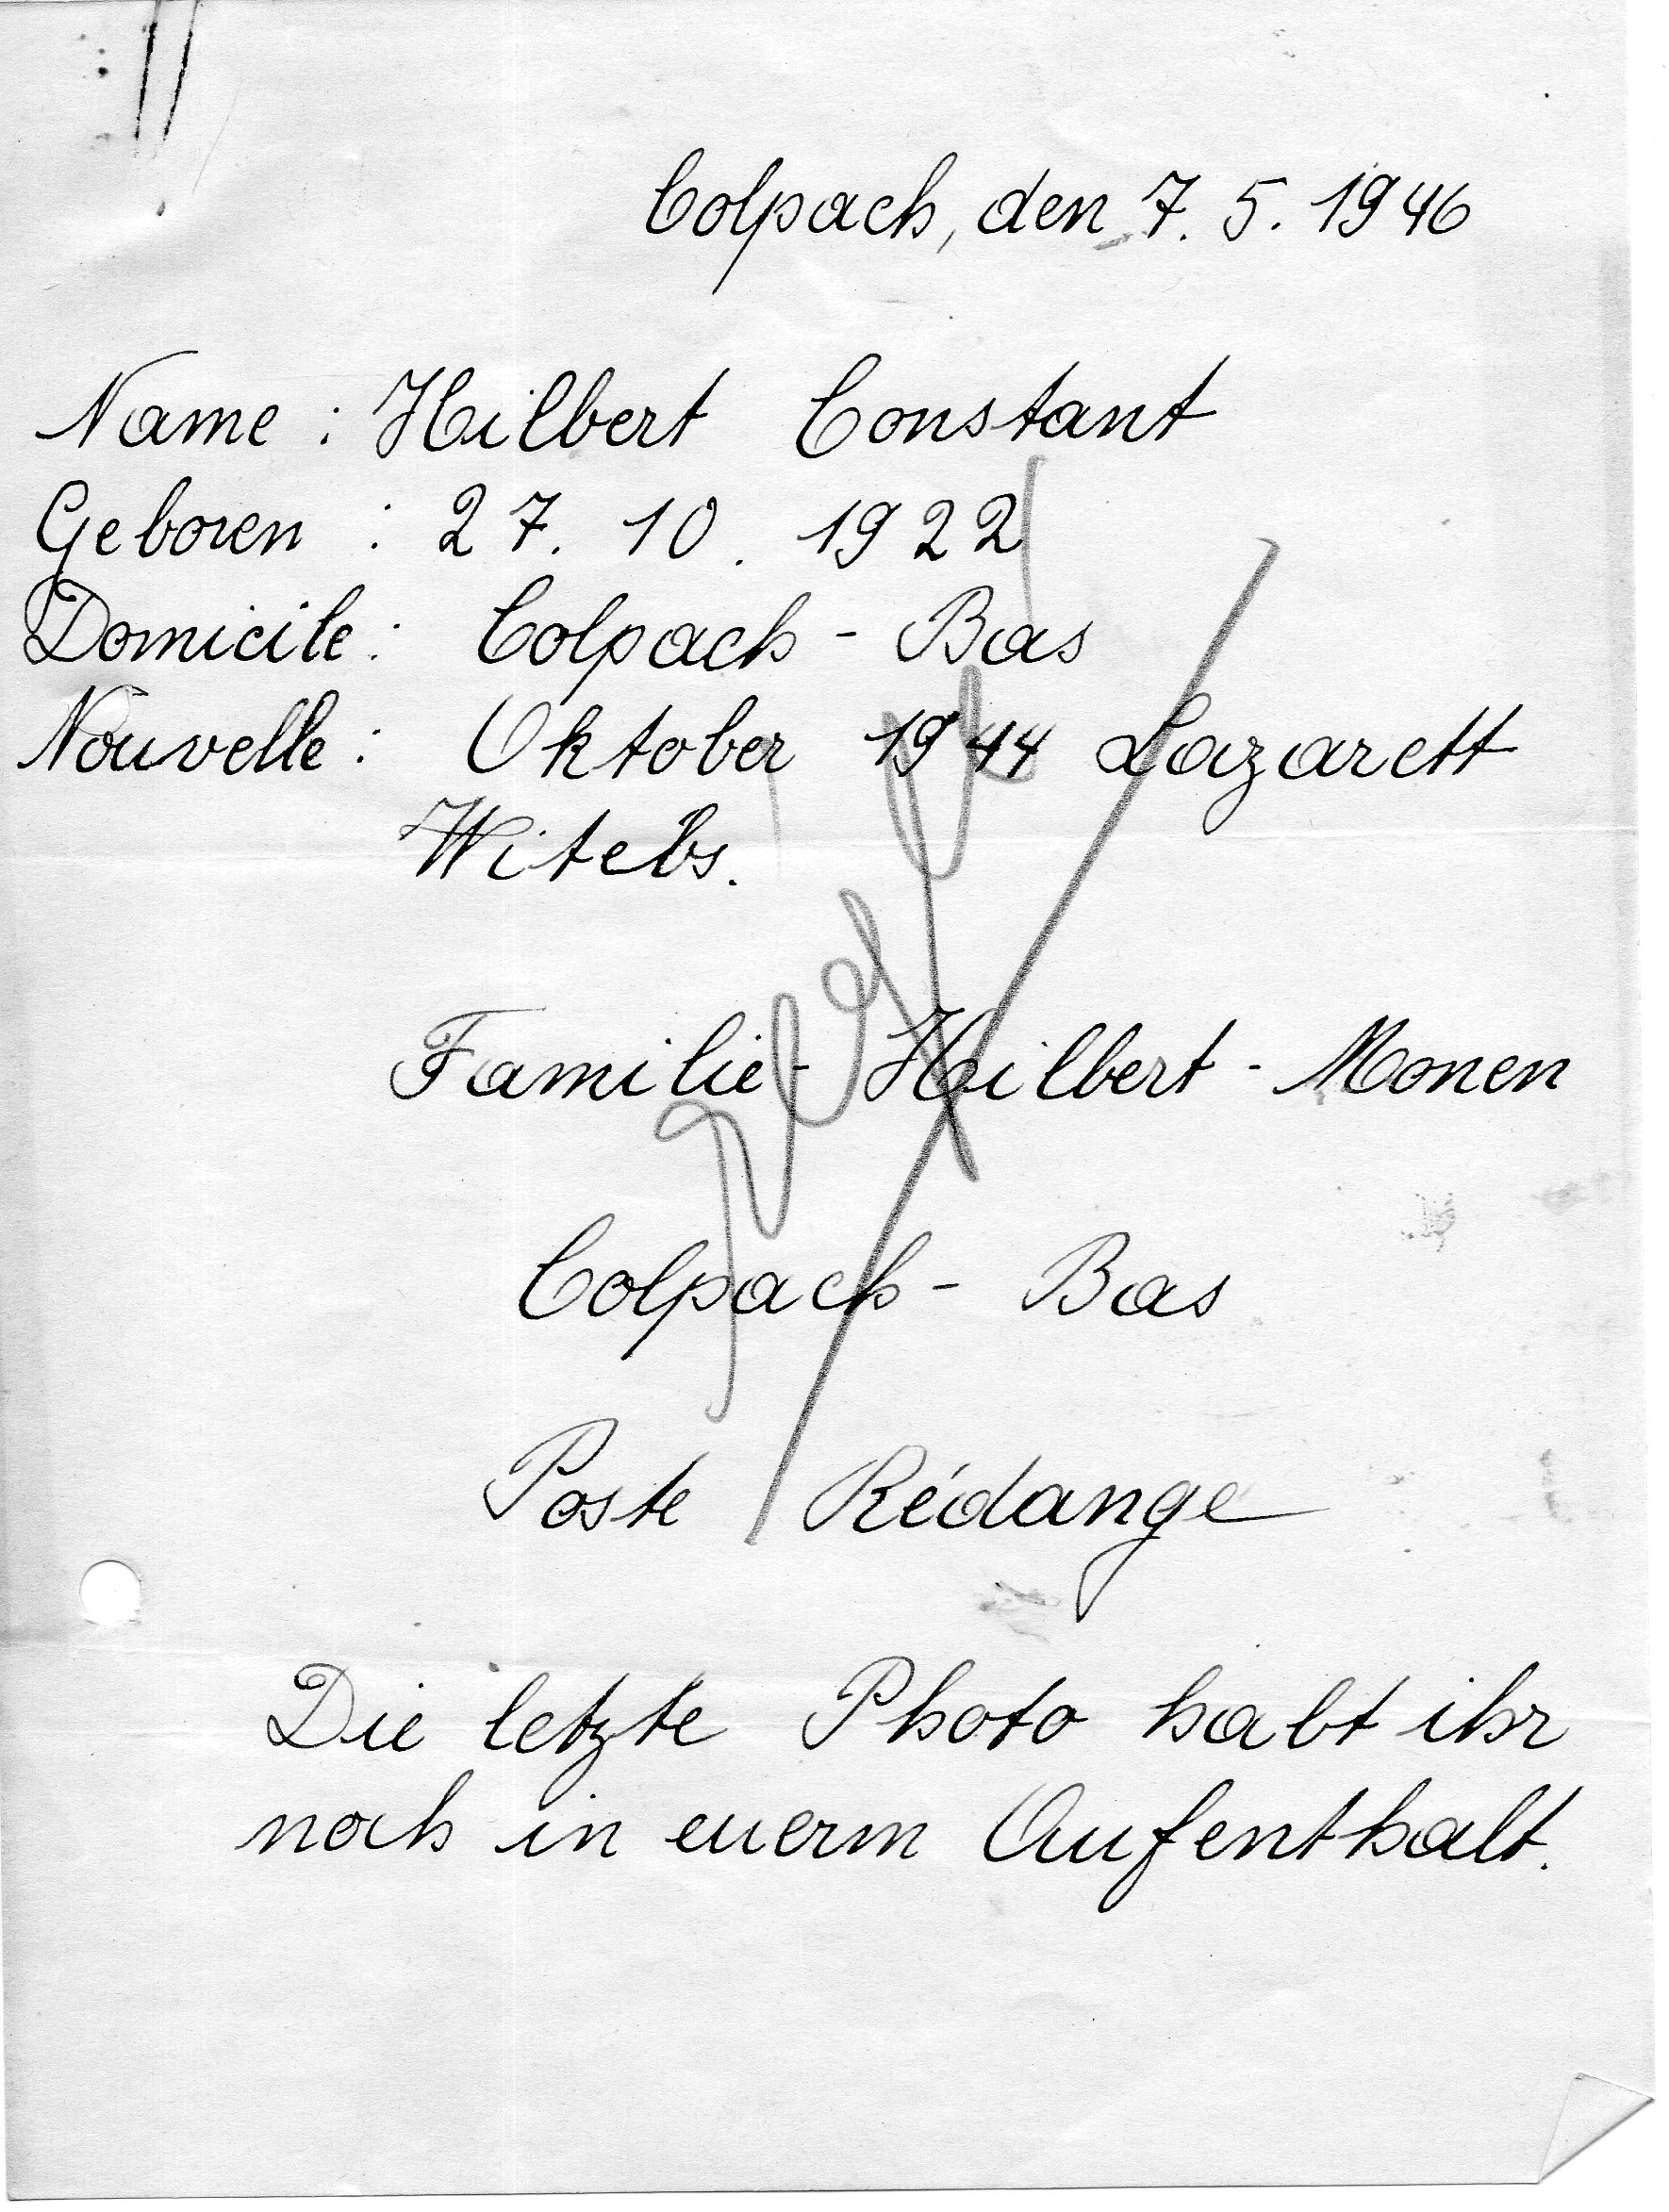 Colpach, den 7. 5. 1946
Name : Hilbert Constant
Geboren : 27. 10. 1922
Domicile : Colpach - Bas
Nouvelle : Oktober 1944 Lazarett
Witebs.
Familie - Hilbert - Monen
Colpach - Bas
Poste Rédange
Die letzte Photo habt ihr
noch in euerm Aufenthalt.